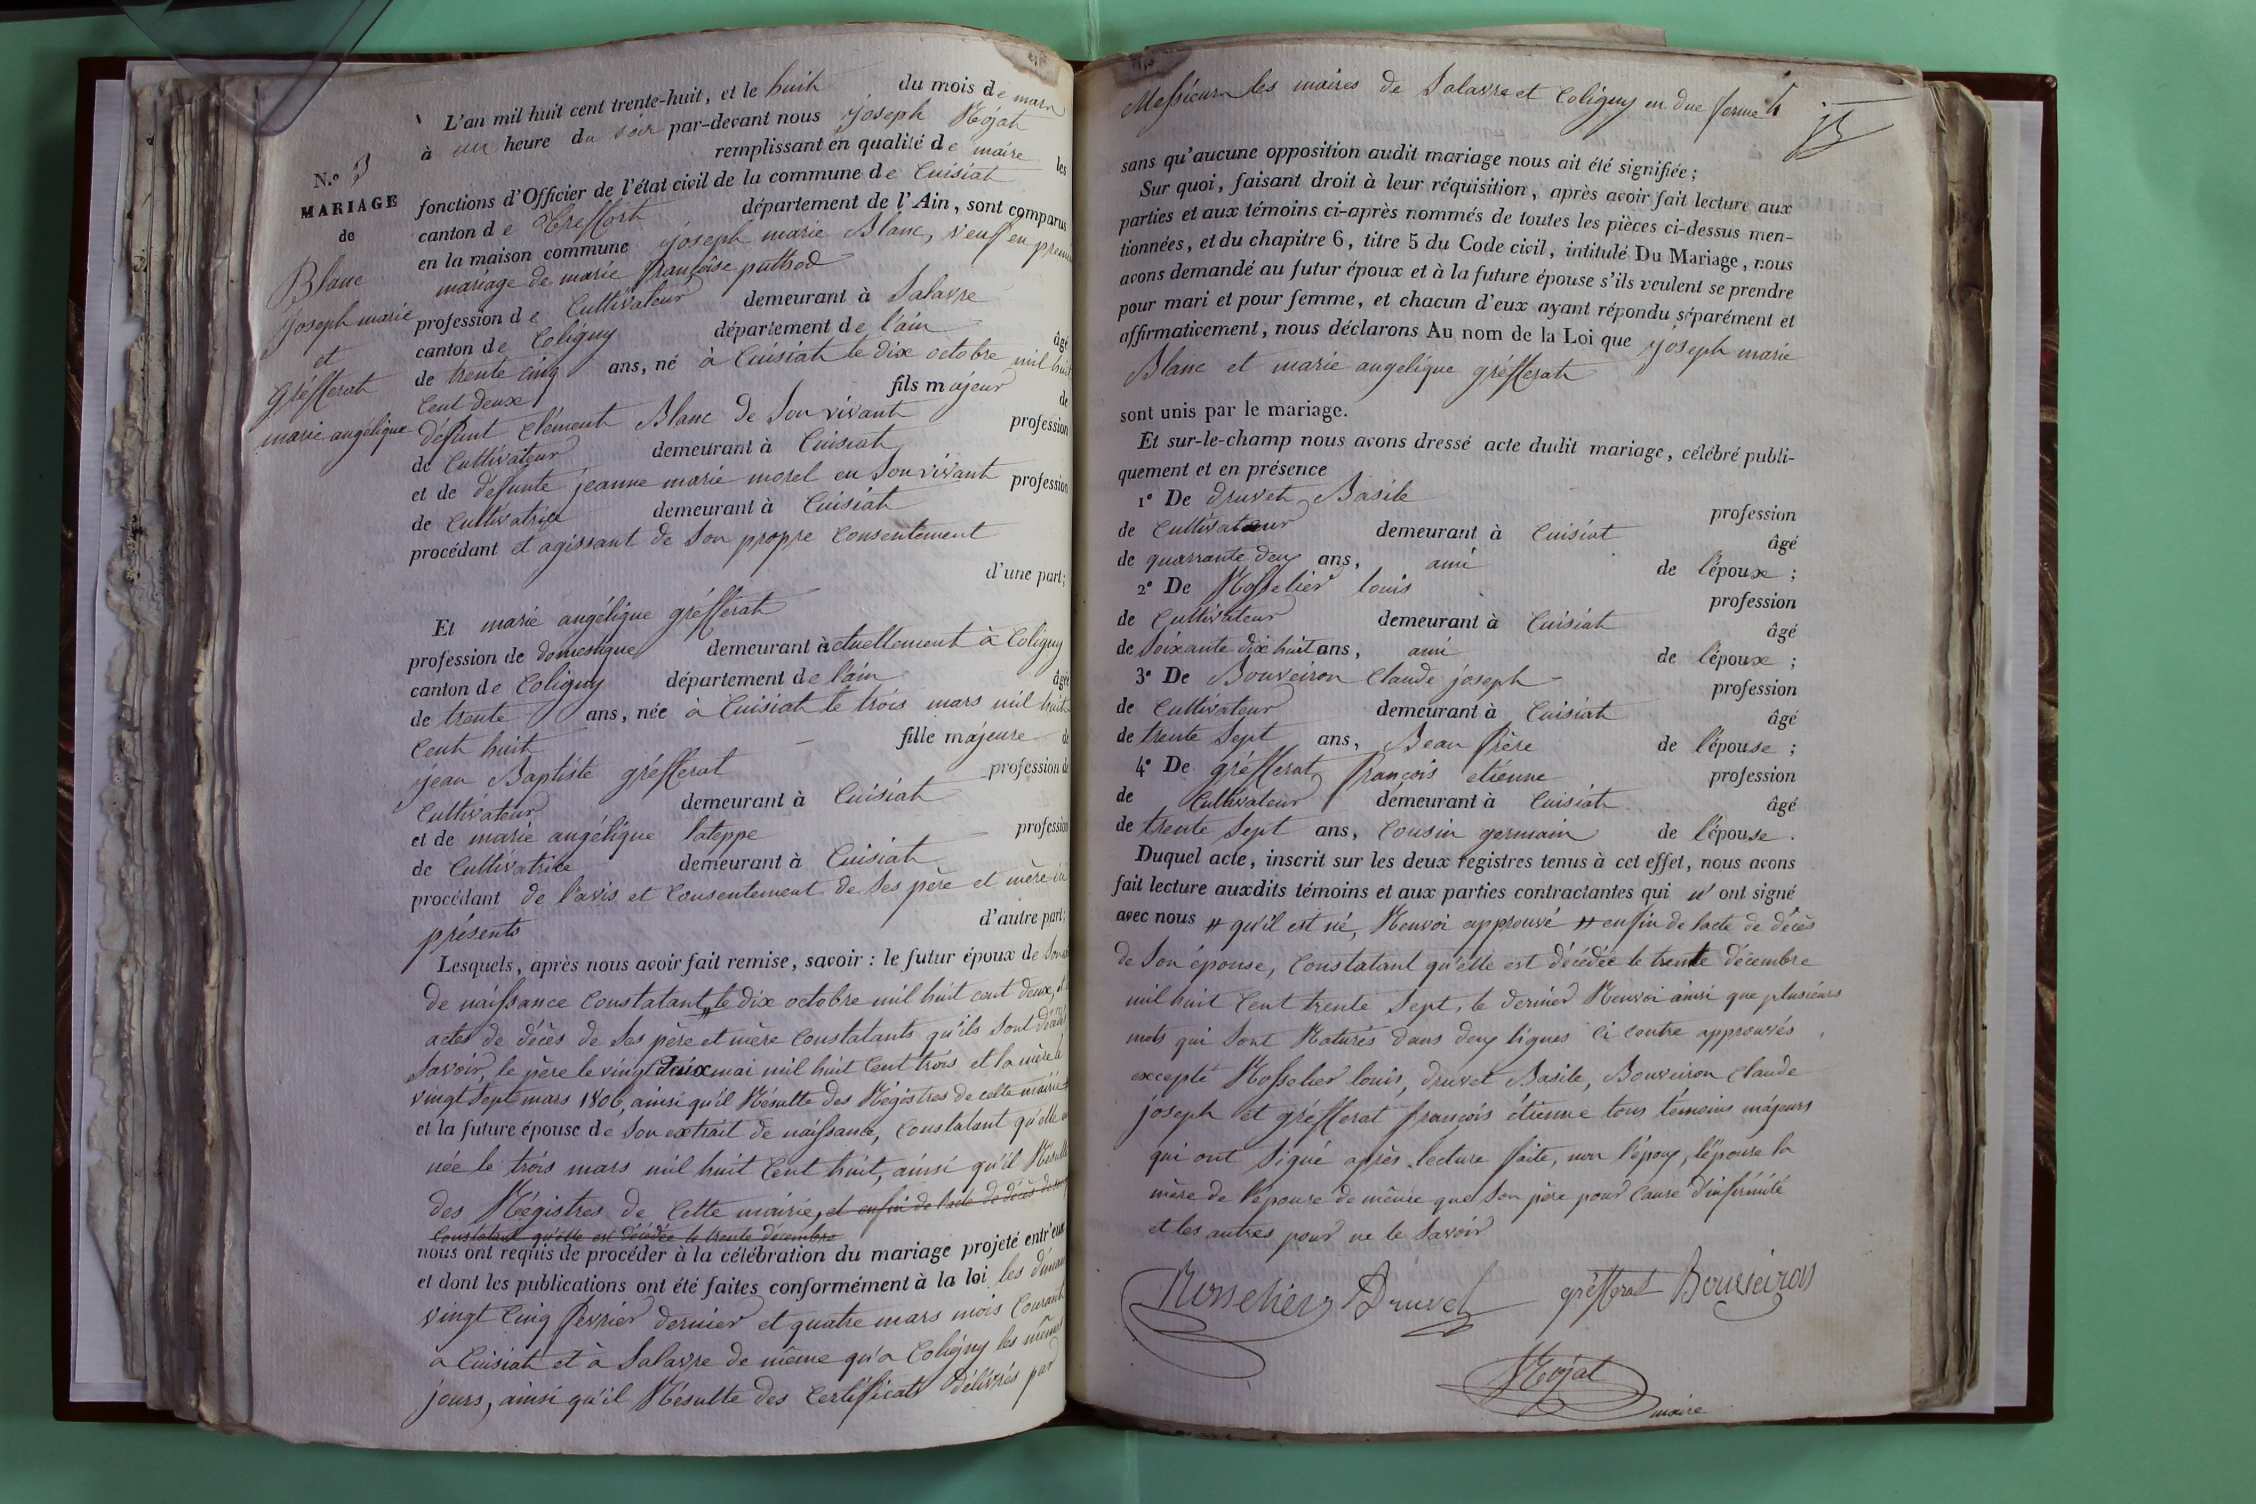 L'an mil huit cent trente-huit, et le huit du mois de mars
à un heure du soir par-devant nous joseph Réjat
remplissant en qualité de maire les
fonctions d'Officier de l'état civil de la commune de Cuisiat
canton de Treffort département de l'Ain, sont comparus
en la maison commune joseph marie Blanc, veuf en premier
mariage de marie françoise puthod
profession de Cultivateur demeurant à Salavre
canton de Coligny département de l'ain âgé
de trente cinq ans, né à Cuisiat le dix octobre mil huit
Cent deux fils majeur de
défunt Clément Blanc de Son vivant profession
de Cultivateur demeurant à Cuisiat
et de défunte jeanne marie morel en Son vivant profession
de Cultivatrice demeurant à Cuisiat
procédant et agissant de Son propre Consentement
d'une part;
N.º 3
MARIAGE
de
Blanc
joseph marie
et
gréfferat
marie angélique
Et marie angélique gréfferat
profession de domestique demeurant actuellement à Coligny
canton de Coligny département de l'ain âgée
de trente ans, née à Cuisiat le trois mars mil huit
Cent huit fille majeure de
jean Baptiste gréfferat profession de
Cultivateur demeurant à Cuisiat
et de marie angélique lateppe profession
de Cultivatrice demeurant à Cuisiat
procédant de l'avis et Consentement de Ses père et mère ici
présents d'autre part;
Lesquels, après nous avoir fait remise, savoir : le futur époux de Son
de naissance Constatant, le dix octobre mil huit cent deux,
actes de décès de Ses père et mère Constatants qu'ils Sont
Savoir, le père le vingt deux mai mil huit Cent trois et la mère le
vingt Sept mars 1806, ainsi qu'il Résulte des Régistres de cette mairie
et la future épouse de Son extrait de naissance, Constatant qu'elle
née le trois mars mil huit Cent huit, ainsi qu'il Résulte
des Régistres de Cette mairie, et enfin de l'acte de décès de
Constatant qu'elle est décédée le trente décembre
nous ont requis de procéder à la célébration du mariage projeté entr'eux
et dont les publications ont été faites conformément à la loi les
vingt Cinq février dernier et quatre mars mois Courant
à Cuisiat et à Salavre de même qu'à Coligny les mêmes
jours, ainsi qu'il Résulte des Certificats délivrés par
Messieurs les maires de Salavre et Coligny en due forme
sans qu'aucune opposition audit mariage nous ait été signifiée;
Sur quoi, faisant droit à leur réquisition, après avoir fait lecture aux
parties et aux témoins ci-après nommés de toutes les pièces ci-dessus men-
tionnées, et du chapitre 6, titre 5 du Code civil, intitulé Du Mariage, nous
avons demandé au futur époux et à la future épouse s'ils veulent se prendre
pour mari et pour femme, et chacun d'eux ayant répondu séparément et
affirmativement, nous déclarons Au nom de la Loi que joseph marie
Blanc et marie angélique gréfferat
sont unis par le mariage.
Et sur-le-champ nous avons dressé acte dudit mariage, célébré publi-
quement et en présence
1º De druvet Basile profession
de Cultivateur demeurant à Cuisiat âgé
de quarrante deux ans, ami de l'époux ;
2º De Rosselier louis profession
de Cultivateur demeurant à Cuisiat âgé
de Soixante dix huit ans, ami de l'époux ;
3º De Bouveiron Claude joseph profession
de Cultivateur demeurant à Cuisiat âgé
de trente Sept ans, Beau frère de l'épouse ;
4º De gréfferat françois etienne profession
de Cultivateur demeurant à Cuisiat âgé
de trente Sept ans, Cousin germain de l'épouse.
Duquel acte, inscrit sur les deux registres tenus à cet effet, nous avons
fait lecture auxdits témoins et aux parties contractantes qui n'ont signé
avec nous # qu'il est né, Renvoi approuvé # enfin de l'acte de décès
de Son épouse, Constatant qu'elle est décédée le trente décembre
mil huit Cent trente Sept, le dernier Renvoi ainsi que plusieurs
mots qui Sont Raturés dans deux lignes Ci contre approuvés,
excepté Rosselier louis, druvet Basile, Bouveiron Claude
joseph et gréfferat françois étienne tous témoins majeurs
qui ont Signé après lecture faite, non l'époux, l'épouse la
mère de l'épouse de même que Son père pour Cause d'infirmité
et les autres pour ne le Savoir
Rosselier Druvet gréfferat Bouveiron
Réjat
maire